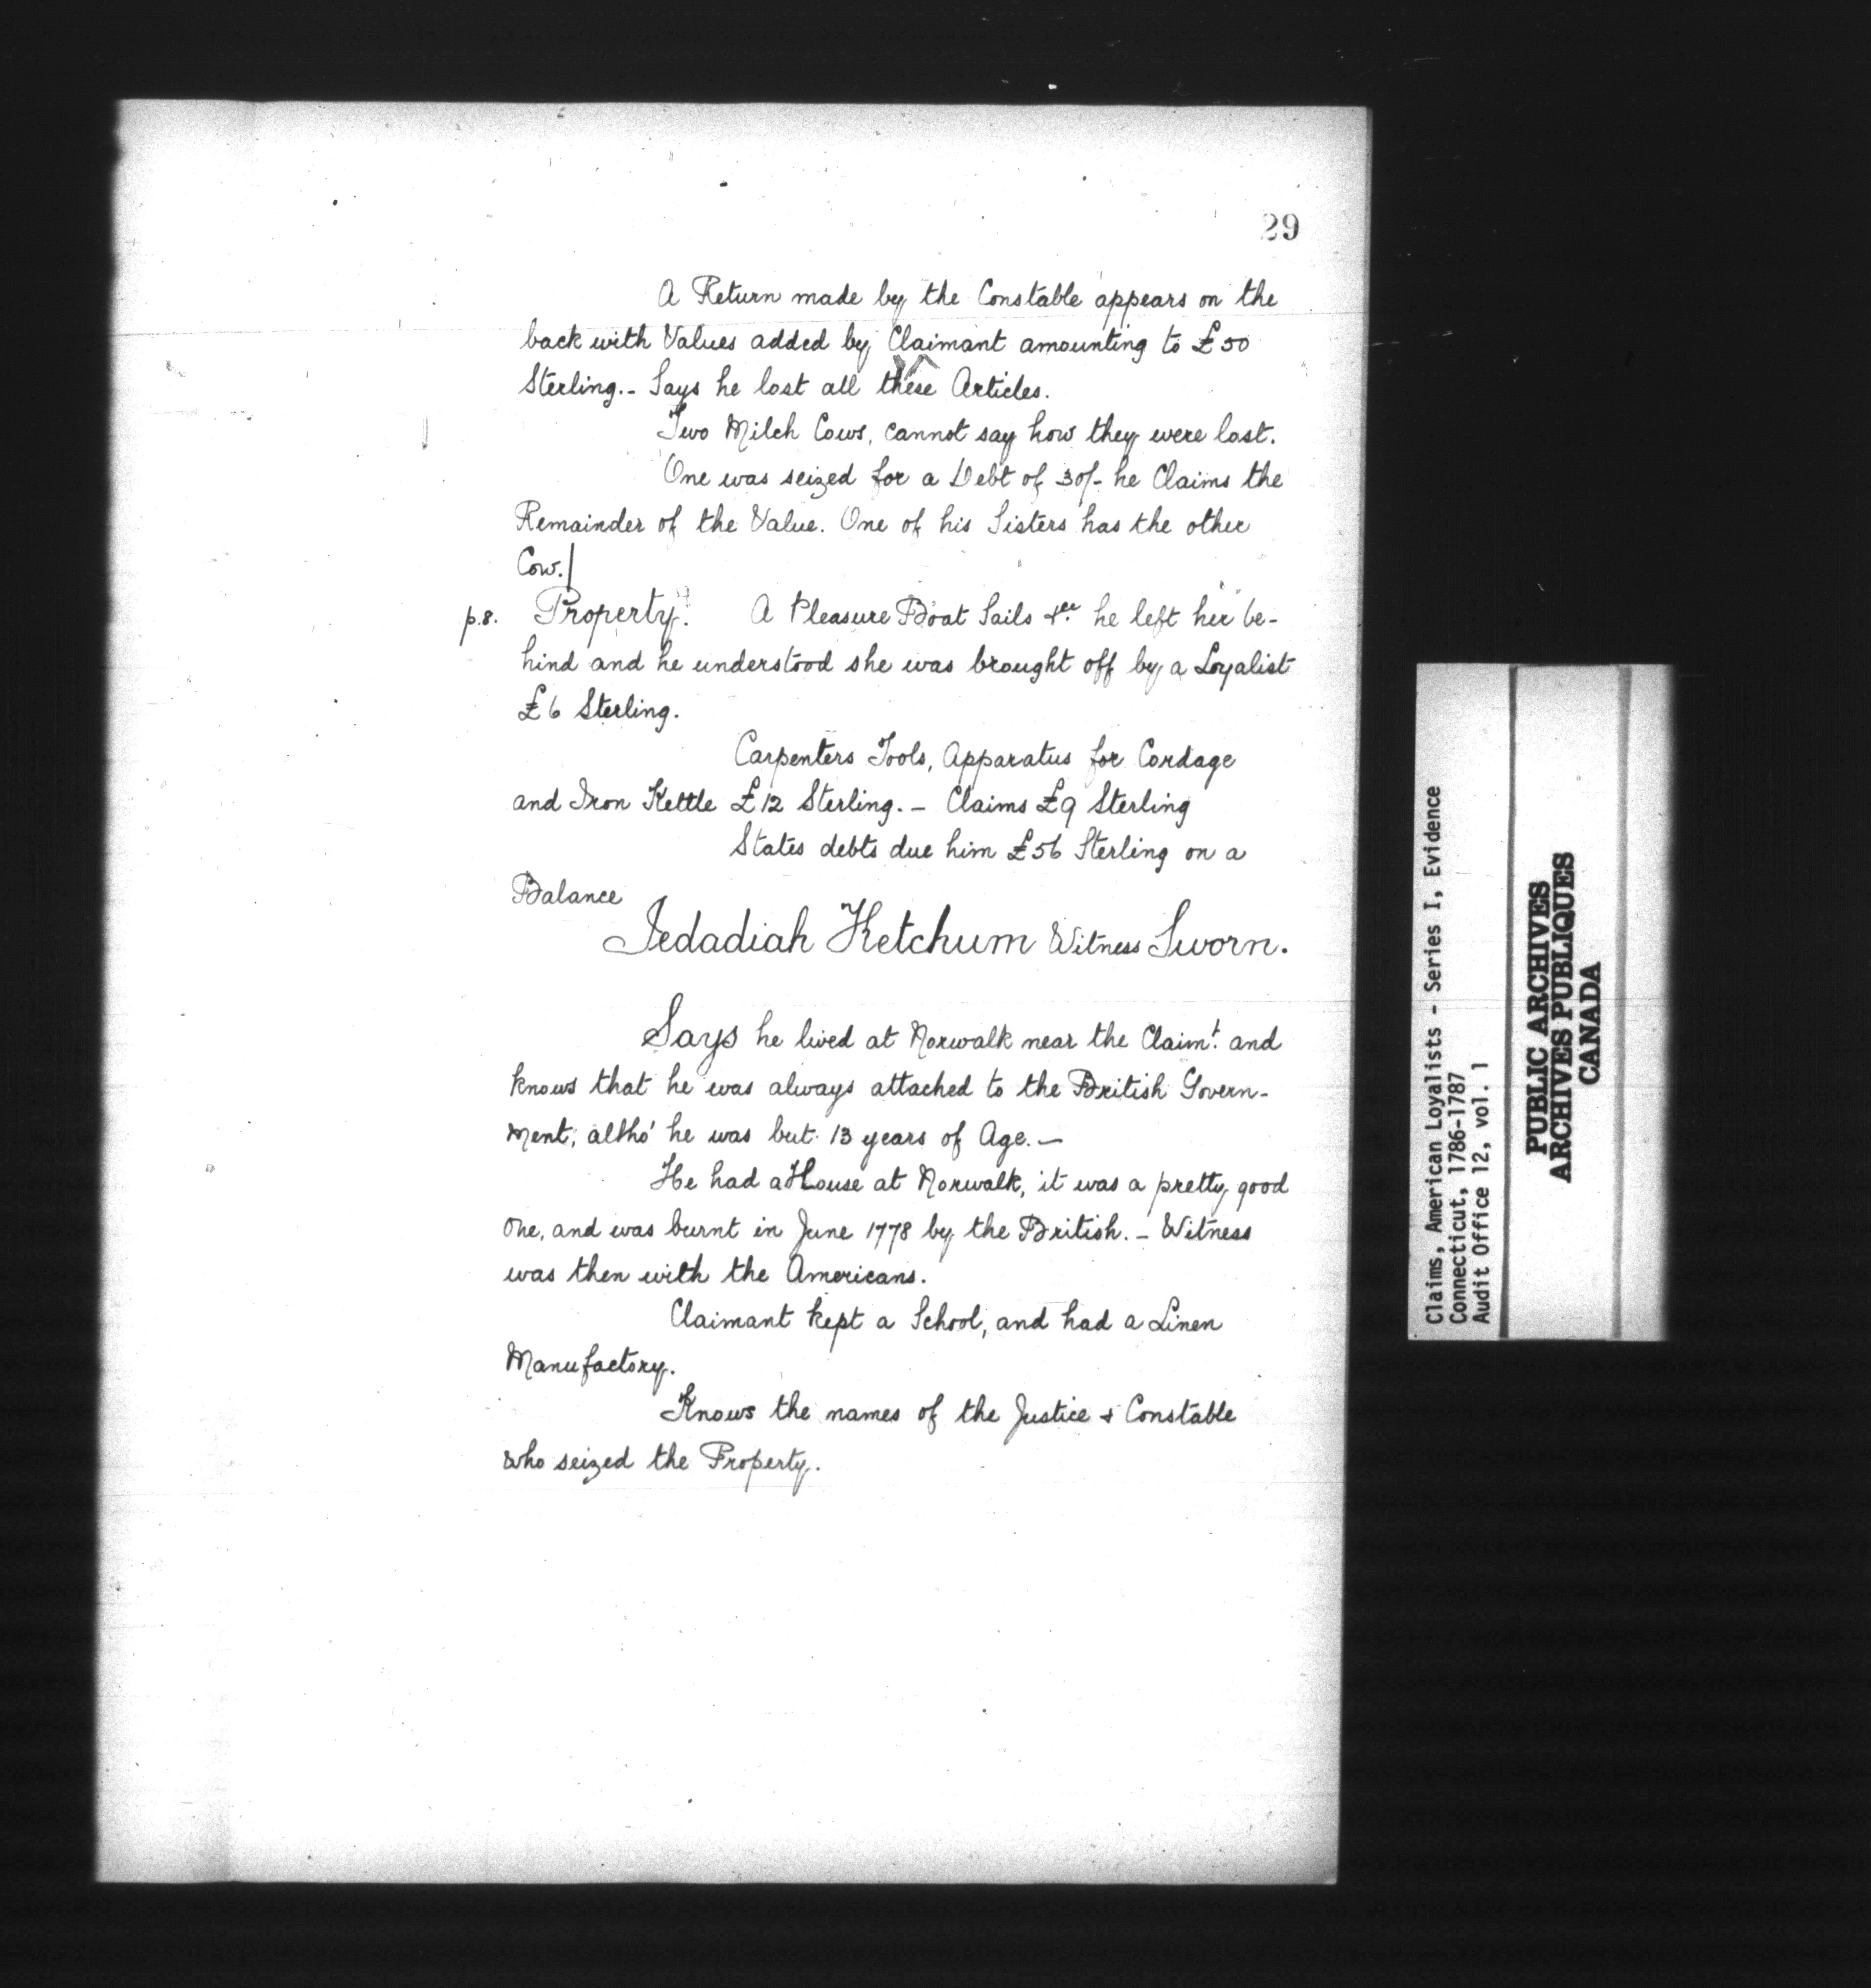 29
A Return made by the Constable appears on the
back with Values added by Claimant amounting to £50
Sterling.- Says he lost all these Articles.
Two Milch Cows, cannot say how they were lost.
One was seized for a Debt of 30/- he Claims the
Remainder of the Value. One of his Sisters has the other
Cow.|
p.8. Property. A Pleasure Boat Sails &ca. he left her be-
hind and he understood she was brought off by a Loyalist
£6 Sterling.
Carpenters Tools, Apparatus for Cordage
and Iron Kettle £12 Sterling. - Claims £9 Sterling
States debts due him £56 Sterling on a
Balance
Jedadiah Ketchum Witness Sworn.
Says he lived at Norwalk near the Claimt. and
knows that he was always attached to the British Govern-
ment, altho' he was but 13 years of Age. -
He had a House at Norwalk, it was a pretty good
one, and was burnt in June 1778 by the British. - Witness
was then with the Americans.
Claimant kept a School, and had a Linen
Manufactory.
Knows the names of the Justice & Constable
who seized the Property.
Claims, American Loyalists - Series I, Evidence
Connecticut, 1786-1787
Audit Office 12, vol. 1
PUBLIC ARCHIVES
ARCHIVES PUBLIQUES
CANADA